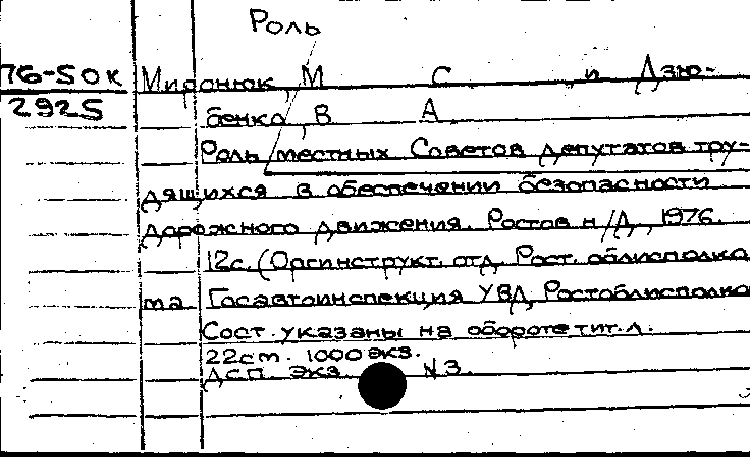 Роль
76-50К Миронюк, М С и Дзю-
2925 бенко, В А
Роль местных Советов депутатов тру-
дящихся в обеспечении безопасности
дорожного движения. Ростов н/Д, 1976.
12с. (Оргинструкт. отд. Рост. облисполко
ма Госавтоинспекция УВД Ростоблисполко
Сост. указаны на обороте тит.л.
22см. 1000 экз.
ДСП. экз. N3.